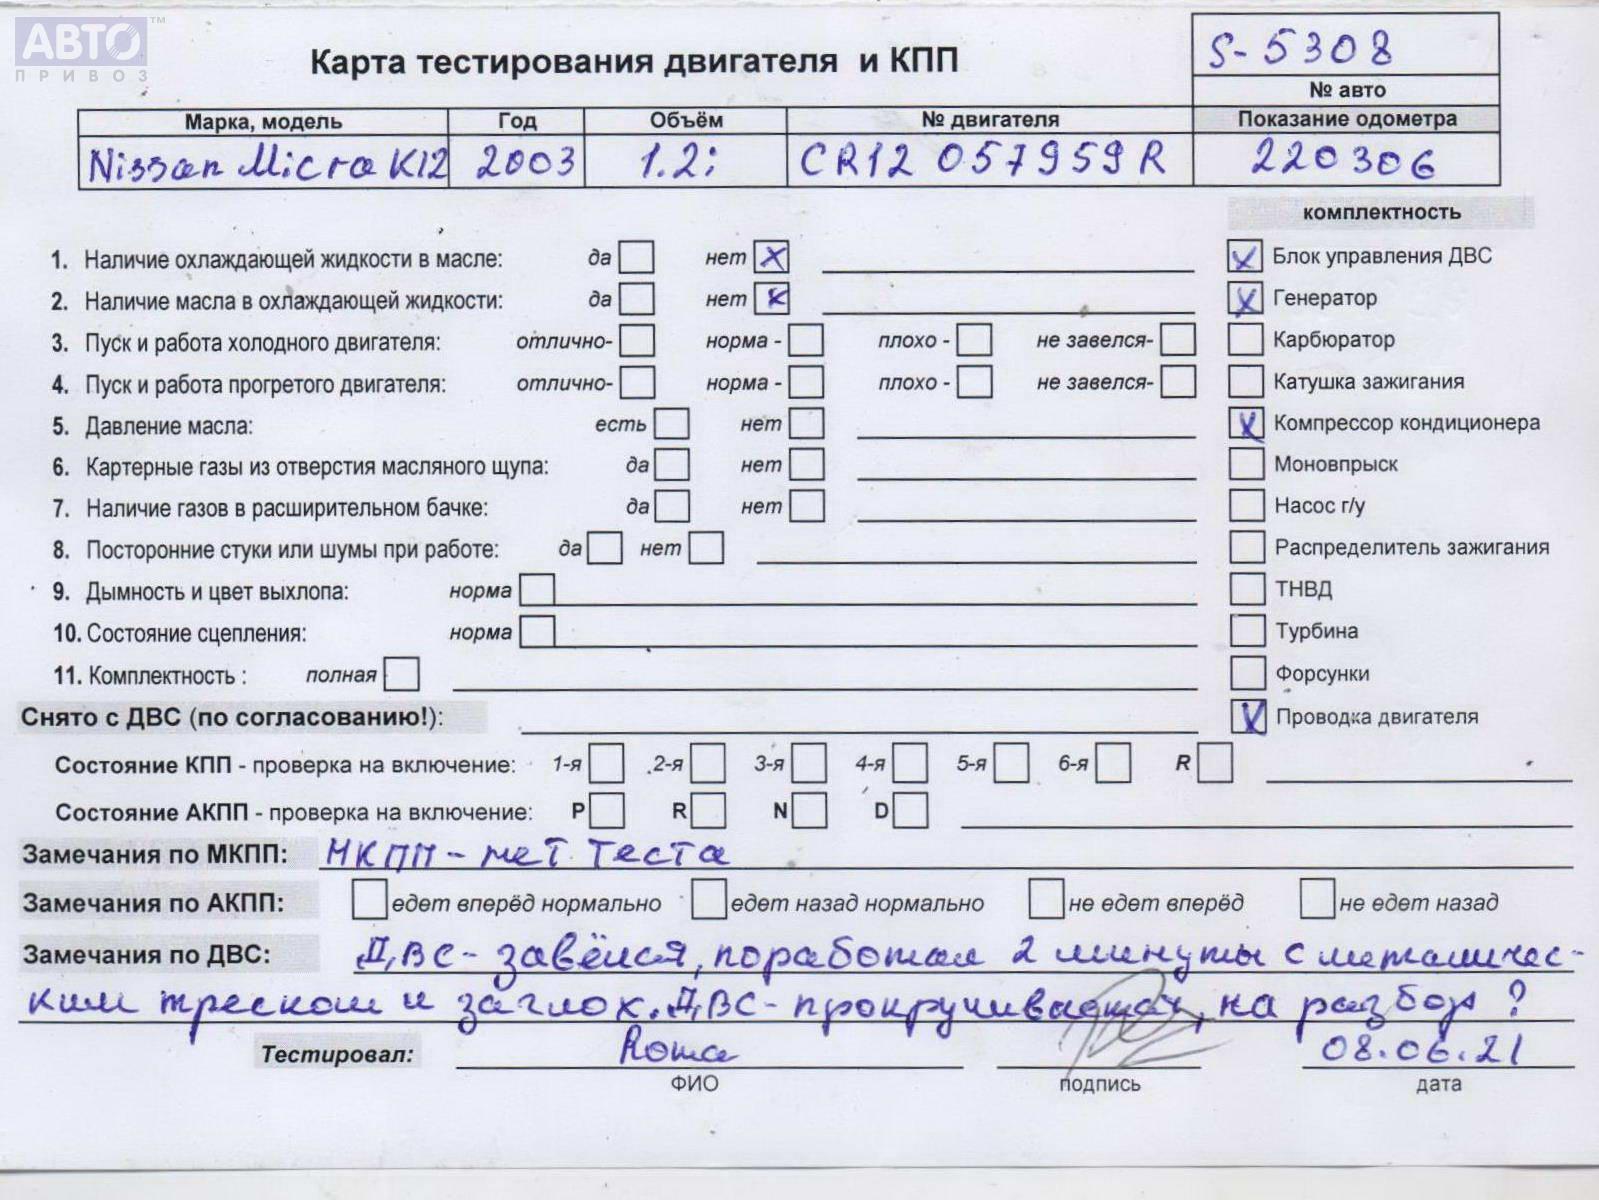 АВТО™
ПРИВОЗ
Карта тестирования двигателя и КПП
S-5308
№ авто
Марка, модель Год Объём № двигателя Показание одометра
Nissan Micra K12 2003 1.2i CR12 057959R 220306
комплектность
1. Наличие охлаждающей жидкости в масле: да нет X Блок управления ДВС X
2. Наличие масла в охлаждающей жидкости: да нет X Генератор X
3. Пуск и работа холодного двигателя: отлично- норма - плохо - не завелся- Карбюратор
4. Пуск и работа прогретого двигателя: отлично- норма - плохо - не завелся- Катушка зажигания
5. Давление масла: есть нет X Компрессор кондиционера
6. Картерные газы из отверстия масляного щупа: да нет Моновпрыск
7. Наличие газов в расширительном бачке: да нет Насос г/у
8. Посторонние стуки или шумы при работе: да нет Распределитель зажигания
9. Дымность и цвет выхлопа: норма ТНВД
10. Состояние сцепления: норма Турбина
11. Комплектность : полная Форсунки
Снято с ДВС (по согласованию!): X Проводка двигателя
Состояние КПП - проверка на включение: 1-я 2-я 3-я 4-я 5-я 6-я R
Состояние АКПП - проверка на включение: P R N D
Замечания по МКПП: МКПП - нет теста
Замечания по АКПП: едет вперёд нормально едет назад нормально не едет вперёд не едет назад
Замечания по ДВС: ДВС - завёлся, поработал 2 минуты с металичес-
ким треском и заглох. ДВС - прокручивается, на разбор ?
Тестировал: Рома 08.06.21
ФИО подпись дата